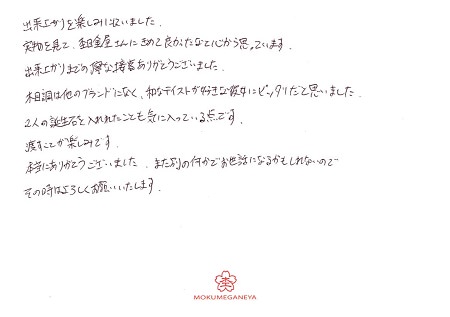 出来上がりを楽しみにしていました。
実物を見て、杢目金屋さんにきめて良かったなと心から思っています。
出来上がりまでの丁寧な接客ありがとうございました。
木目調は他のブランドになく、和なテイストが好きな彼女にピッタリだと思いました。
2人の誕生石を入れれたことも気に入っている点です。
渡すことが楽しみです。
本当にありがとうございました。また別の何かでお世話になるかもしれないので
その時はよろしくお願いいたします。
杢
MOKUMEGANEYA